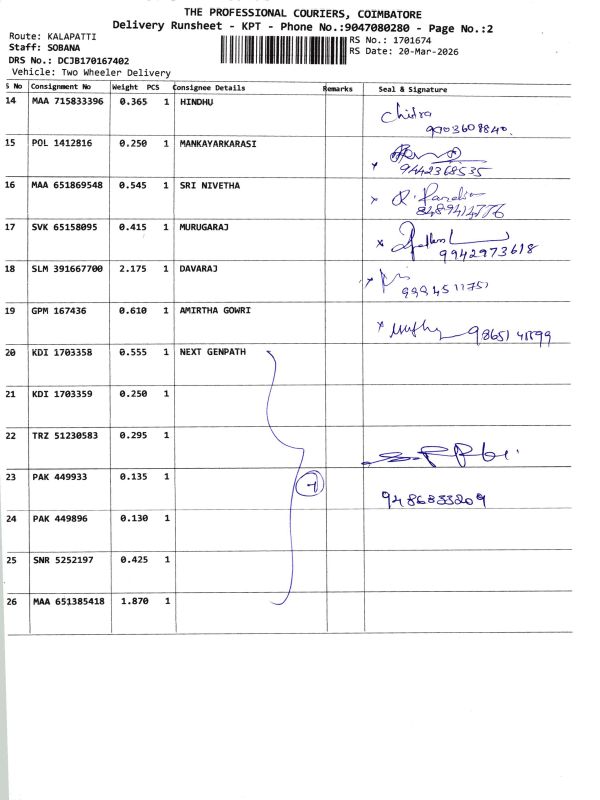 THE PROFESSIONAL COURIERS, COIMBATORE
Delivery Runsheet - KPT - Phone No.:9047080280 - Page No.:2
Route: KALAPATTI
Staff: SOBANA
DRS No.: DCJB170167402
Vehicle: Two Wheeler Delivery
RS No.: 1701674
RS Date: 20-Mar-2026
S No Consignment No Weight PCS Consignee Details Remarks Seal & Signature
14 MAA 715833396 0.365 1 HINDHU
Chitra
9003608840.
15 POL 1412816 0.250 1 MANKAYARKARASI
x 9442368535
16 MAA 651869548 0.545 1 SRI NIVETHA
x
8489414776
17 SVK 65158095 0.415 1 MURUGARAJ
x
9942973618
18 SLM 391667700 2.175 1 DAVARAJ
x
19 GPM 167436 0.610 1 AMIRTHA GOWRI
x
20 KDI 1703358 0.555 1 NEXT GENPATH
21 KDI 1703359 0.250 1
22 TRZ 51230583 0.295 1
23 PAK 449933 0.135 1
7
9486833209
24 PAK 449896 0.130 1
25 SNR 5252197 0.425 1
26 MAA 651385418 1.870 1